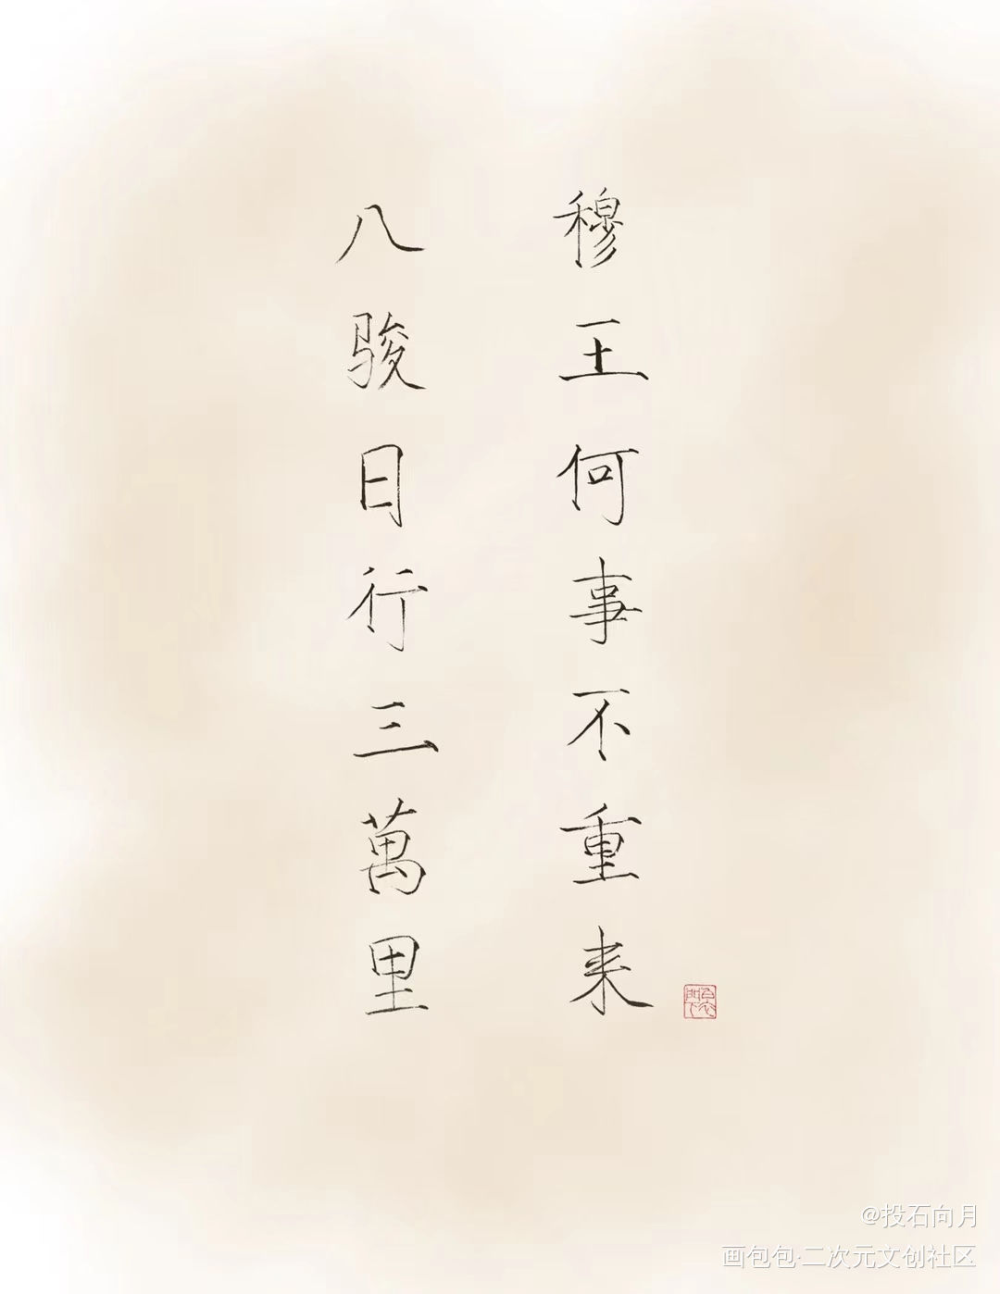 八骏日行三萬里
穆王何事不重来
@投石向月
画包包·二次元文创社区